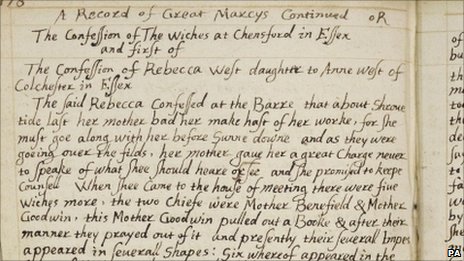 A Record of Great Marcys Continued oR
The Confession of The Wiches at Chensford in Essex
and first of
The Confession of Rebecca West daughter to Anne West of
Colchester in Essex
The said Rebecca Confessed at the Barre that about Shroue
tide last her mother bad her make hast of her worke, for she
must goe along with her before Sunne downe and as they were
goeing over the filds, her mother gaue her a great Charge neuer
to speake of what shee should heare or see and she promised to keepe
Counsell When shee Came to the house of meeting there were fiue
Wiches more, the two Chiefe were Mother Benefield & Mother
Goodwin, this Mother Goodwin pulled out a Booke & after their
manner they prayed out of it and presently their seuerall Impes
appeared in seuerall Shapes: Six whereof appeared in the
of
PA